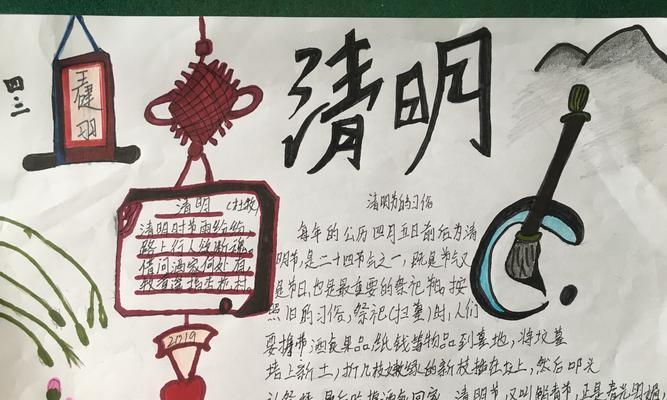 四.三
王健羽
清明
清明 (杜牧)
清明时节雨纷纷
路上行人欲断魂
借问酒家何处有
牧童遥指杏花村
2019
清明节的习俗
每年的公历四月五日前后为清
明节,是二十四节气之一,既是节气又
是节日,也是最重要的祭祀节,按
照旧的习俗,祭祀(扫墓)时,人们
要携带酒食果品,纸钱等物品到墓地,将坟墓
培上新土,折几枝嫩绿的新枝插在坟上,然后叩头
清明节,又叫踏青节,正是春光明媚,